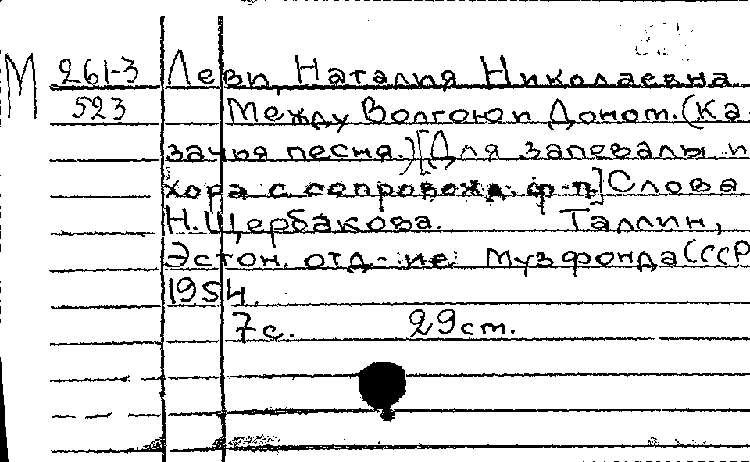 М 261-3 Леви, Наталия Николаевна
523 Между Волгою и Доном. (Ка-
зачья песня.) [Для запевалы и
хора с сопровожд. ф-п.] Слова
Н. Щербакова. Таллин,
Эстон. отд-ие музфонда СССР
1954.
7 с. 29 cm.